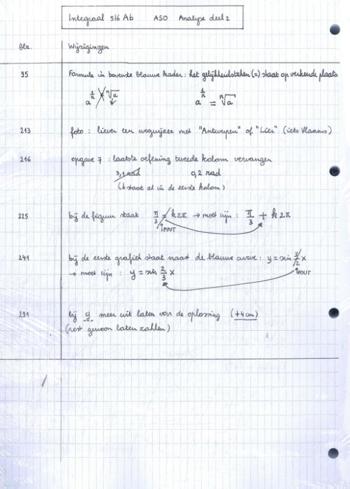 Integraal 5/6 Ab ASO Analyse deel 2
Blz. Wijzigingen
95 Formule in bovenste blauwe kader: het gelijkheidsteken (=) staat op verkeerde plaats
a^(1/n) = ⁿ√a
213 foto: liever een wegwijzer met "Antwerpen" of "Lier" (iets Vlaams)
216 opgave 7: laatste oefening tweede kolom vervangen
0,2 rad
(b staat al in de eerste kolom)
225 bij de figuur staat π/3 k2π → moet zijn: π/3 + k2π
FOUT
241 bij de eerste grafiek staat naast de blauwe curve: y = sin 3/2 x
→ moet zijn: y = sin 2/3 x FOUT
291 bij g meer uit laten van de oplossing (+4cm)
(rest gewoon laten zakken)